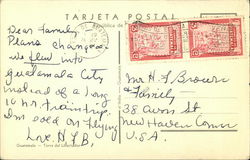 TARJETA POSTAL
República de
Dear Family,
Plans changed.
We flew into
Guatemala City
instead of a long
10 hr. train trip.
I'm sold on flying
Love, H.J.B.
Mr. H. F. Brown
& Family
38 Avon St
New Haven Conn
U.S.A.
Guatemala — Torre del Libertador